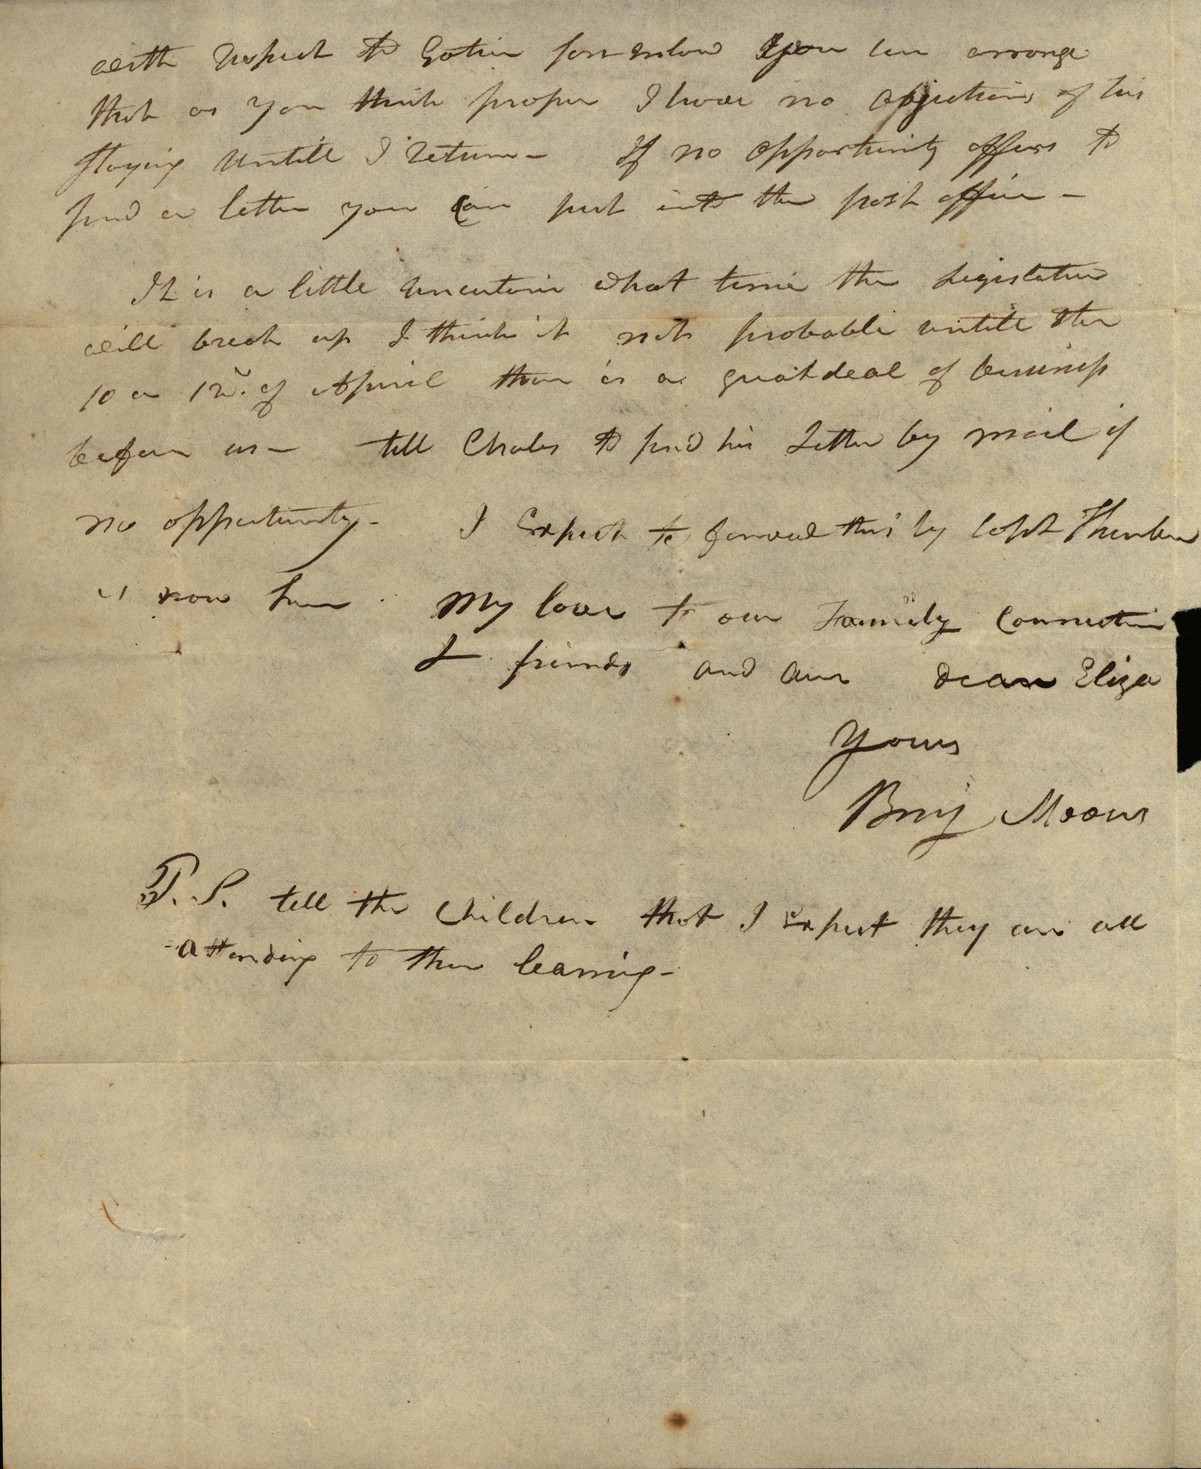 with respect to you can arrange
that as you think proper I have no objections of his
staying untill I return - If no opportunity offers to
send a letter you can put into the post office -
It is a little uncertain what time the Legislature
will break up I think it not probable untill the
10 or 12th. of April there is a great deal of business
before us - tell Charles to send his Letter by mail if
no opportunity - I Expect to forward this by Capt
is now here. My love to our Family Connection
& friends and our dear Eliza
Yours
Benj Mooers
P.S. tell the Children that I Expect they are all
attending to their learning -